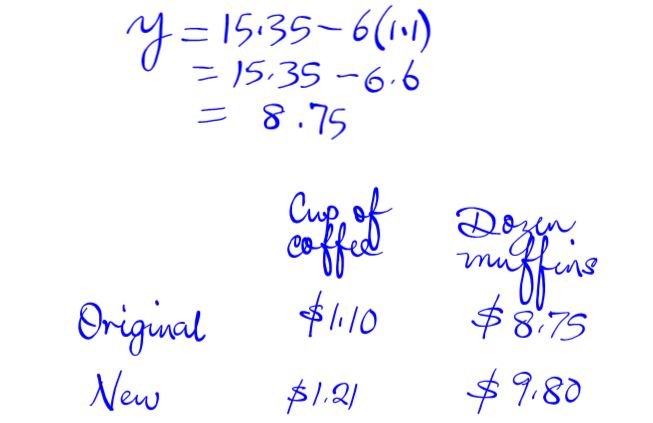 y = 15.35 - 6(1.1)
= 15.35 - 6.6
= 8.75
Cup of coffee
Dozen muffins
Original $1.10 $8.75
New $1.21 $9.80